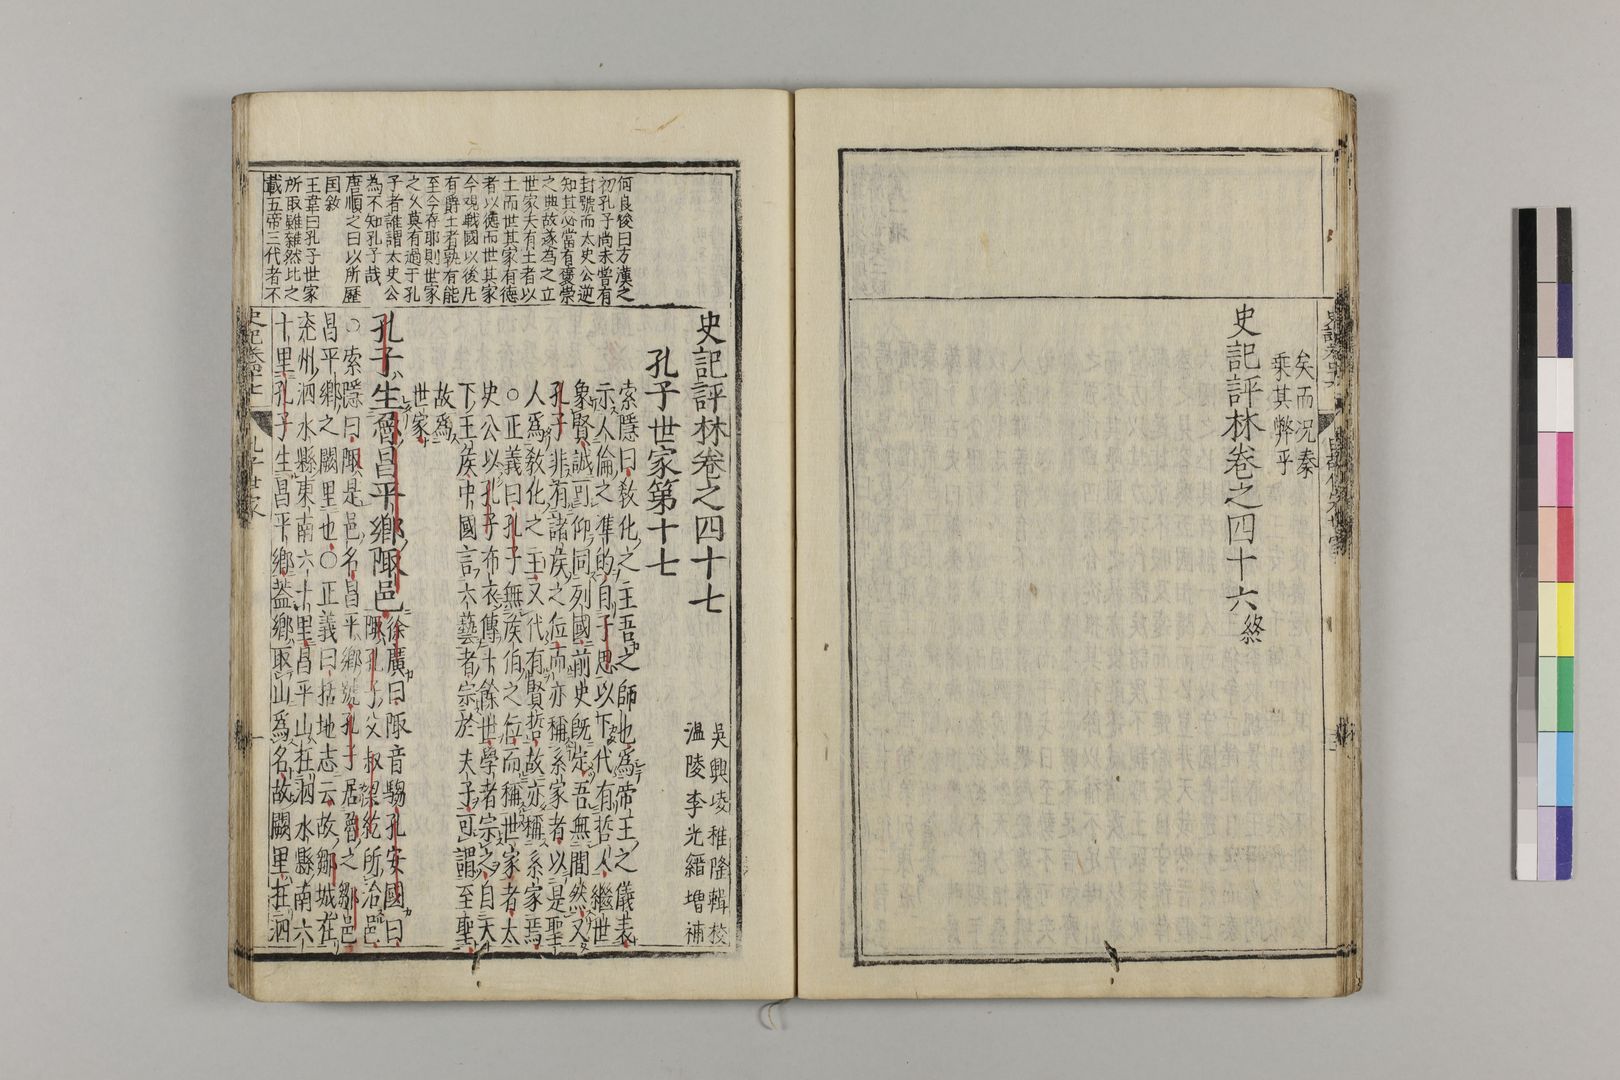 矣而况秦
乗其弊乎
史記評林卷之四十六終
何良俊曰方漢之
初孔子尚未嘗有
封號而太史公逆
知其必當有褒崇
之典故遂為之立
世家夫有土者以
土而世其家有德
者以德而世其家
今觀戰國以後凡
有爵土者孰有能
至今存耶則世家
之久莫有過于孔
子者誰謂太史公
為不知孔子哉
唐順之曰以所歷
国敘
王韋曰孔子世家
所取雖雜然比之
載五帝三代者不
史記評林卷之四十七
吳興凌稚隆輯校
溫陵李光縉增補
孔子世家第十七
索隱曰敎化之主吾之師也爲帝王之儀表
示人倫之準的自子思以下代有哲人繼世
象賢誠可仰同列國前史既定吾無間然又
孔子非有諸侯之位而亦稱系家者以是聖
人爲敎化之主又代有賢哲故亦稱系家焉
○正義曰孔子無侯伯之位而稱世家者太
史公以孔子布衣傳十餘世學者宗之自天
子王侯中國言六藝者宗於夫子可謂至聖
故爲
世家
孔子生魯昌平鄉陬邑徐廣曰陬音騶孔安國曰
陬孔子父叔梁紇所治邑
○索隱曰陬是邑名昌平鄉號孔子居魯之鄒邑
昌平鄉之闕里也○正義曰括地志云故鄒城在
兖州泗水縣東南六十里昌平山在泗水縣南六
十里孔子生昌平鄉蓋鄉取山爲名故闕里在泗
孔子世家